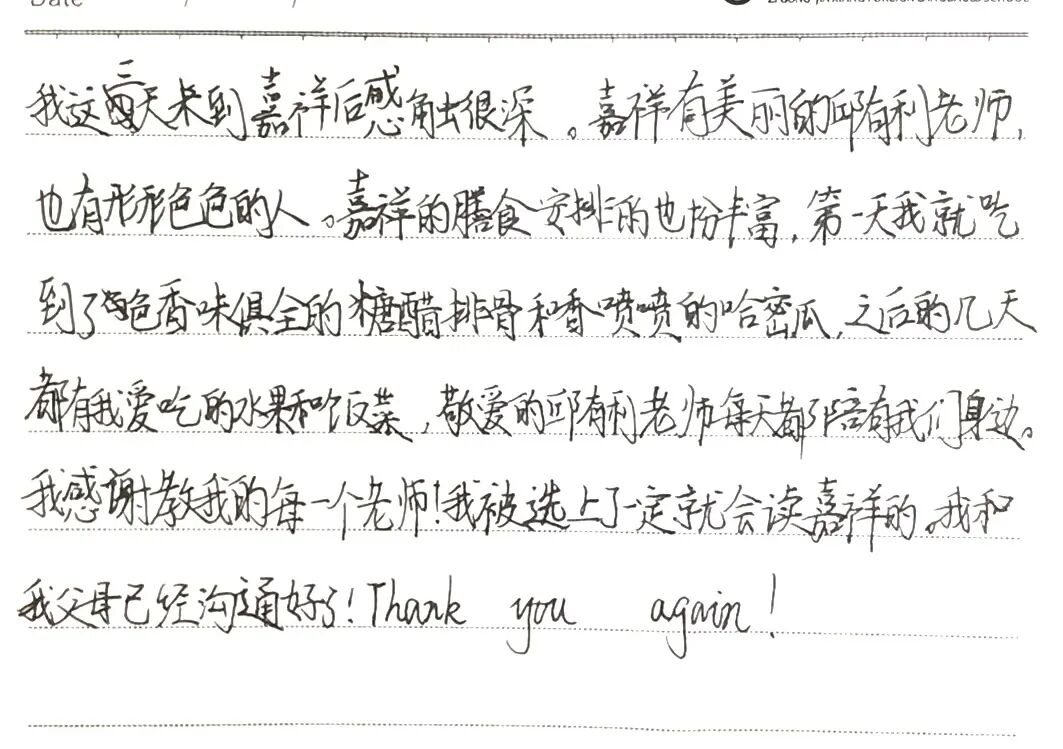 Date / /
我这三天来到嘉祥后感触很深。嘉祥有美丽的邱有利老师,
也有形形色色的人。嘉祥的膳食安排的也扮丰富,第一天我就吃
到了色香味俱全的糖醋排骨和香喷喷的哈密瓜,之后的几天
都有我爱吃的水果和饭菜,敬爱的邱有利老师每天都陪有我们身边。
我感谢教我的每一个老师!我被选上了一定就会读嘉祥的。我和
我父母已经沟通好了!Thank you again!